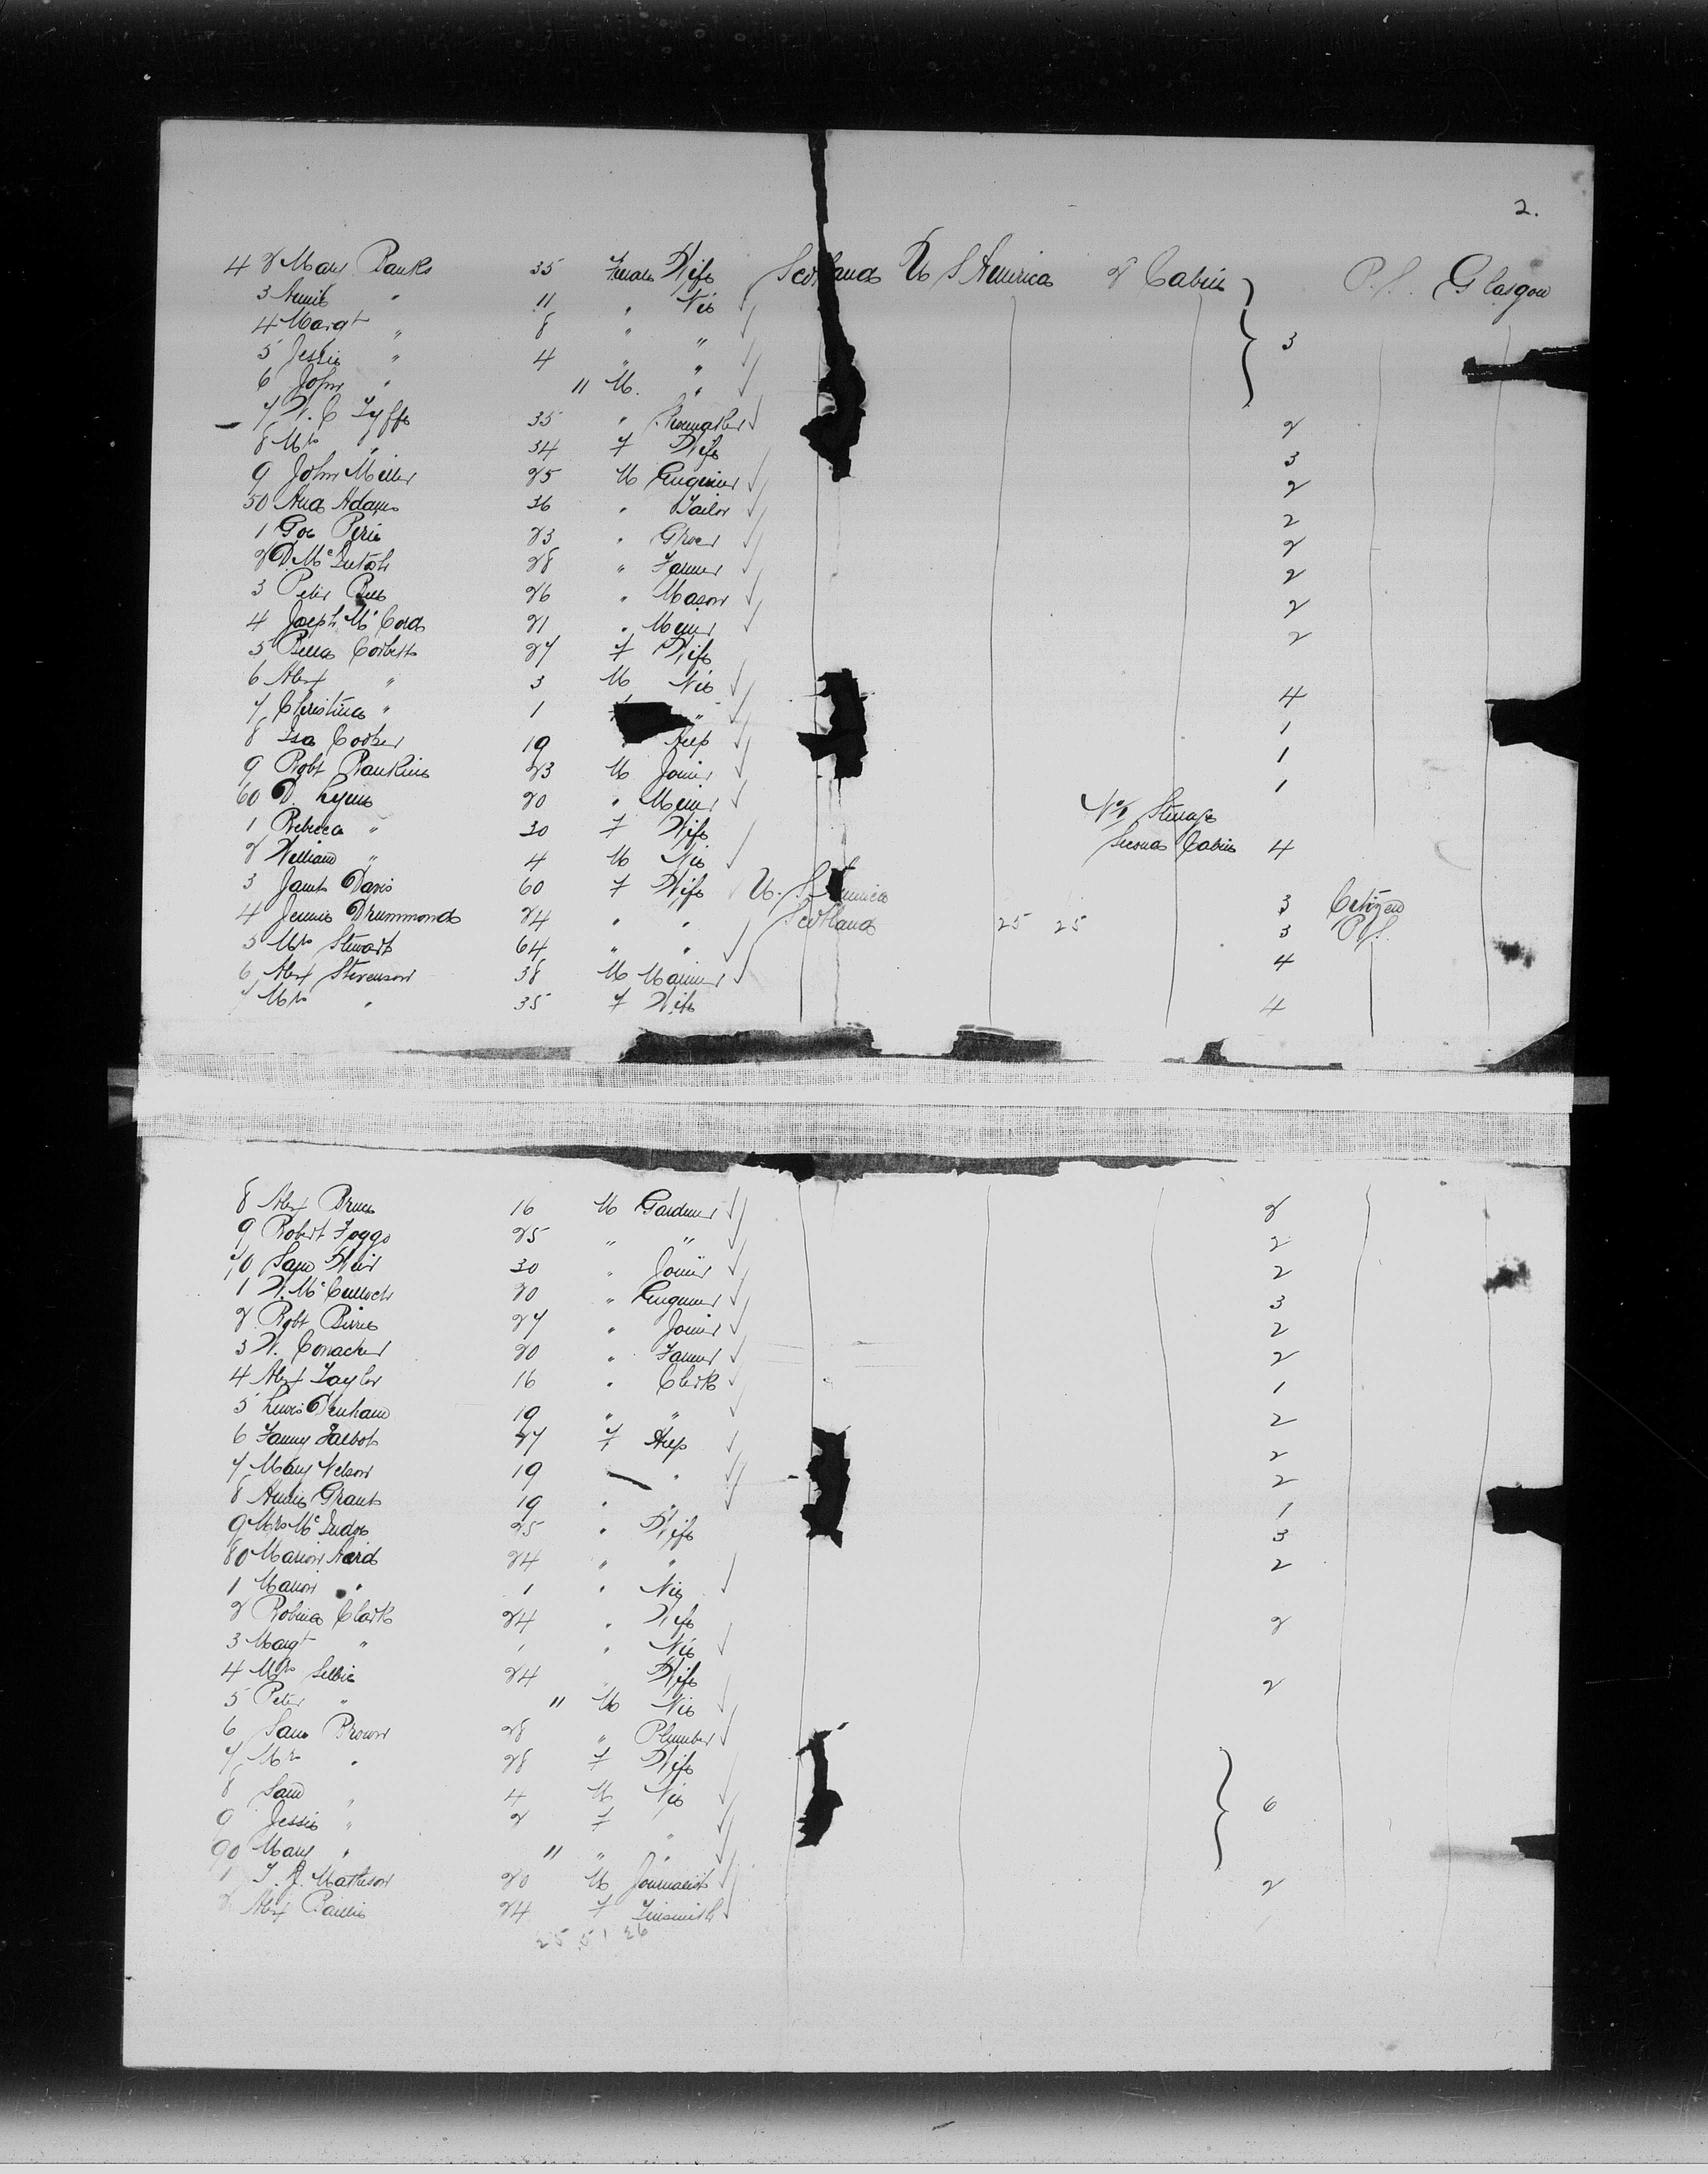 2.
42 Mary Banks 35 Female Wife Scotland U S America 2 Cabin P.S. Glasgow
3 Annie " 11 " Nil
4 Margt " 8 " " 3
5 Jessie " 4 " "
6 John " 11 M. "
7 W. C Fyffe 35 " 2
8 Mrs " 34 F Wife 3
9 John Miller 25 M Engineer 2
50 Adams 36 " Tailor 2
1 Geo Peril 23 " Grocer 2
2 D. McIntosh 28 " Farmer 2
3 Peter 26 " Mason 2
4 Joseph McCord 21 " Miner 2
5 Bella Corbett 27 F Wife
6 Alex " 3 M Nil 4
7 Christina " 1 " 1
8 Isa 19 1
9 Robt Rankin 23 M Joiner 1
60 D. Lyons 20 " Miner Steerage
1 Rebecca " 30 F Wife Second Cabin 4
2 William " 4 M Nil
3 Janet Davis 60 F Wife U. S. America 3 Citizen
4 Jennie Drummond 24 " " Scotland 25 25 3 P.S.
5 Mrs Stewart 64 " " 4
6 Alex Stevenson 38 M
7 Mrs " 35 F Wife 4
8 Alex Bruce 16 M Gardener 2
9 Robert Foggo 25 " " 2
70 Sam Weir 30 " Joiner 2
1 W. McCulloch 20 " Engineer 3
2 Robt Birrie 27 " Joiner 2
3 W. Conacher 20 " Farmer 2
4 Alex Taylor 16 " Clerk 1
5 Lewis Denham 19 " " 2
6 Fanny Talbot 27 F 2
7 Mary Nelson 19 " 2
8 Annie Grant 19 " " 1
9 Mrs McJudge 25 " Wife 3
80 Marion Aird 24 " " 2
1 Marion " 1 " Nil
2 Robina Clark 24 " Wife 2
3 Margt " 1 " Nil
4 Mrs Selbie 24 " Wife 2
5 Peter " 11 M Nil
6 Sam Brown 28 " Plumber
7 Mrs " 28 F Wife
8 Sam " 4 M Nil 6
9 Jessie " 2 F "
90 Mary " 11 " "
1 T. J. Matheson 20 M Journalist 2
2 Alex 24 F Tinsmith
25 51 26